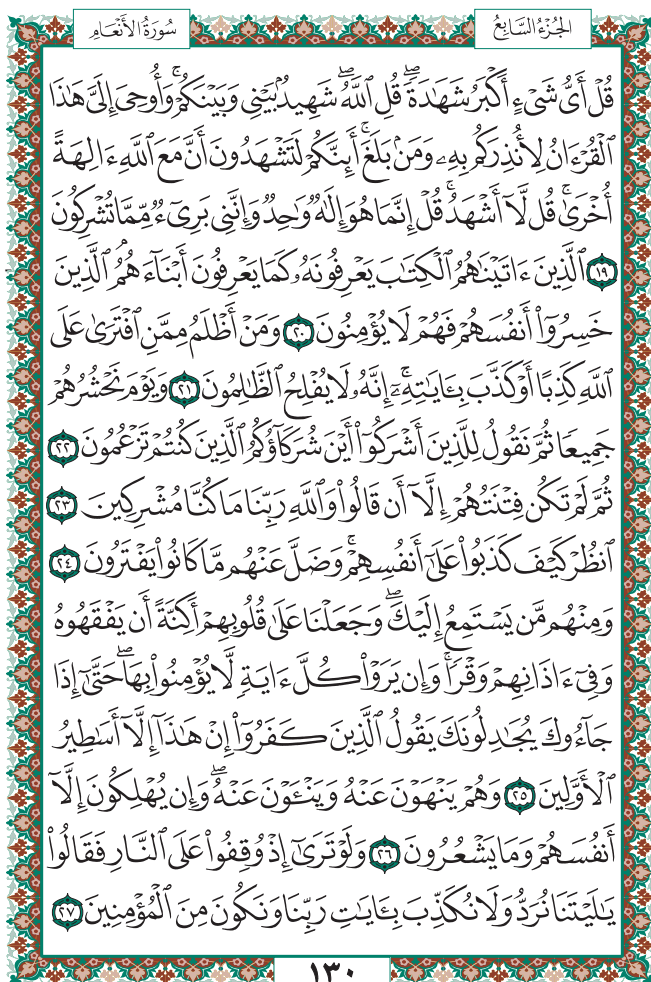 الجُزْءُ السَّابِعُ
سُورَةُ الأَنْعَام
قُلْ أَىُّ شَىْءٍ أَكْبَرُ شَهَٰدَةً ۖ قُلِ ٱللَّهُ ۖ شَهِيدٌۢ بَيْنِى وَبَيْنَكُمْ ۚ وَأُوحِىَ إِلَىَّ هَٰذَا
ٱلْقُرْءَانُ لِأُنذِرَكُم بِهِۦ وَمَنۢ بَلَغَ ۚ أَئِنَّكُمْ لَتَشْهَدُونَ أَنَّ مَعَ ٱللَّهِ ءَالِهَةً
أُخْرَىٰ ۚ قُل لَّآ أَشْهَدُ ۚ قُلْ إِنَّمَا هُوَ إِلَٰهٌ وَٰحِدٌ وَإِنَّنِى بَرِىٓءٌ مِّمَّا تُشْرِكُونَ
١٩ ٱلَّذِينَ ءَاتَيْنَٰهُمُ ٱلْكِتَٰبَ يَعْرِفُونَهُۥ كَمَا يَعْرِفُونَ أَبْنَآءَهُمُ ۘ ٱلَّذِينَ
خَسِرُوٓا۟ أَنفُسَهُمْ فَهُمْ لَا يُؤْمِنُونَ ٢٠ وَمَنْ أَظْلَمُ مِمَّنِ ٱفْتَرَىٰ عَلَى
ٱللَّهِ كَذِبًا أَوْ كَذَّبَ بِـَٔايَٰتِهِۦٓ ۗ إِنَّهُۥ لَا يُفْلِحُ ٱلظَّٰلِمُونَ ٢١ وَيَوْمَ نَحْشُرُهُمْ
جَمِيعًا ثُمَّ نَقُولُ لِلَّذِينَ أَشْرَكُوٓا۟ أَيْنَ شُرَكَآؤُكُمُ ٱلَّذِينَ كُنتُمْ تَزْعُمُونَ ٢٢
ثُمَّ لَمْ تَكُن فِتْنَتُهُمْ إِلَّآ أَن قَالُوا۟ وَٱللَّهِ رَبِّنَا مَا كُنَّا مُشْرِكِينَ ٢٣
ٱنظُرْ كَيْفَ كَذَبُوا۟ عَلَىٰٓ أَنفُسِهِمْ ۚ وَضَلَّ عَنْهُم مَّا كَانُوا۟ يَفْتَرُونَ ٢٤
وَمِنْهُم مَّن يَسْتَمِعُ إِلَيْكَ ۖ وَجَعَلْنَا عَلَىٰ قُلُوبِهِمْ أَكِنَّةً أَن يَفْقَهُوهُ
وَفِىٓ ءَاذَانِهِمْ وَقْرًا ۚ وَإِن يَرَوْا۟ كُلَّ ءَايَةٍ لَّا يُؤْمِنُوا۟ بِهَا ۖ حَتَّىٰٓ إِذَا
جَآءُوكَ يُجَٰدِلُونَكَ يَقُولُ ٱلَّذِينَ كَفَرُوٓا۟ إِنْ هَٰذَآ إِلَّآ أَسَٰطِيرُ
ٱلْأَوَّلِينَ ٢٥ وَهُمْ يَنْهَوْنَ عَنْهُ وَيَنْـَٔوْنَ عَنْهُ ۖ وَإِن يُهْلِكُونَ إِلَّآ
أَنفُسَهُمْ وَمَا يَشْعُرُونَ ٢٦ وَلَوْ تَرَىٰٓ إِذْ وُقِفُوا۟ عَلَى ٱلنَّارِ فَقَالُوا۟
يَٰلَيْتَنَا نُرَدُّ وَلَا نُكَذِّبَ بِـَٔايَٰتِ رَبِّنَا وَنَكُونَ مِنَ ٱلْمُؤْمِنِينَ ٢٧
١٣٠